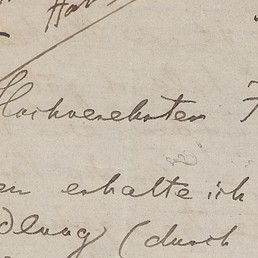 Hochverehrter
en erhalte ich
dlung (durch